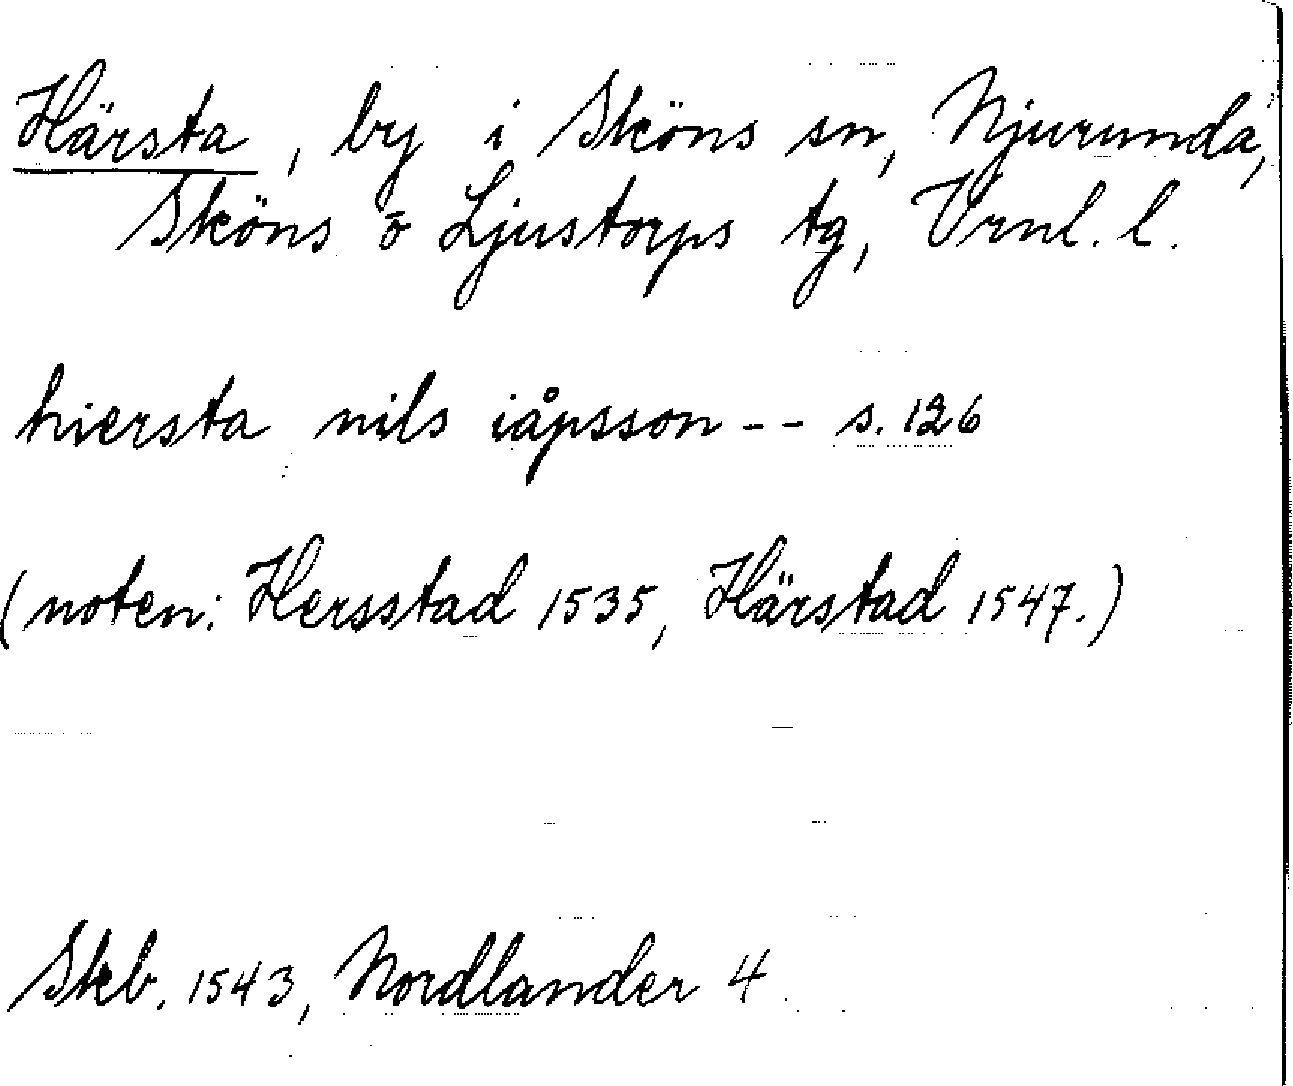 Härsta, by i Sköns sn, Njurunda,
Sköns o Ljustorps tg, Vrnl. l.
hiersta nils iåpsson -- s. 126
(noten: Hersstad 1535, Härstad 1547.)
Skb. 1543, Nordlander 4